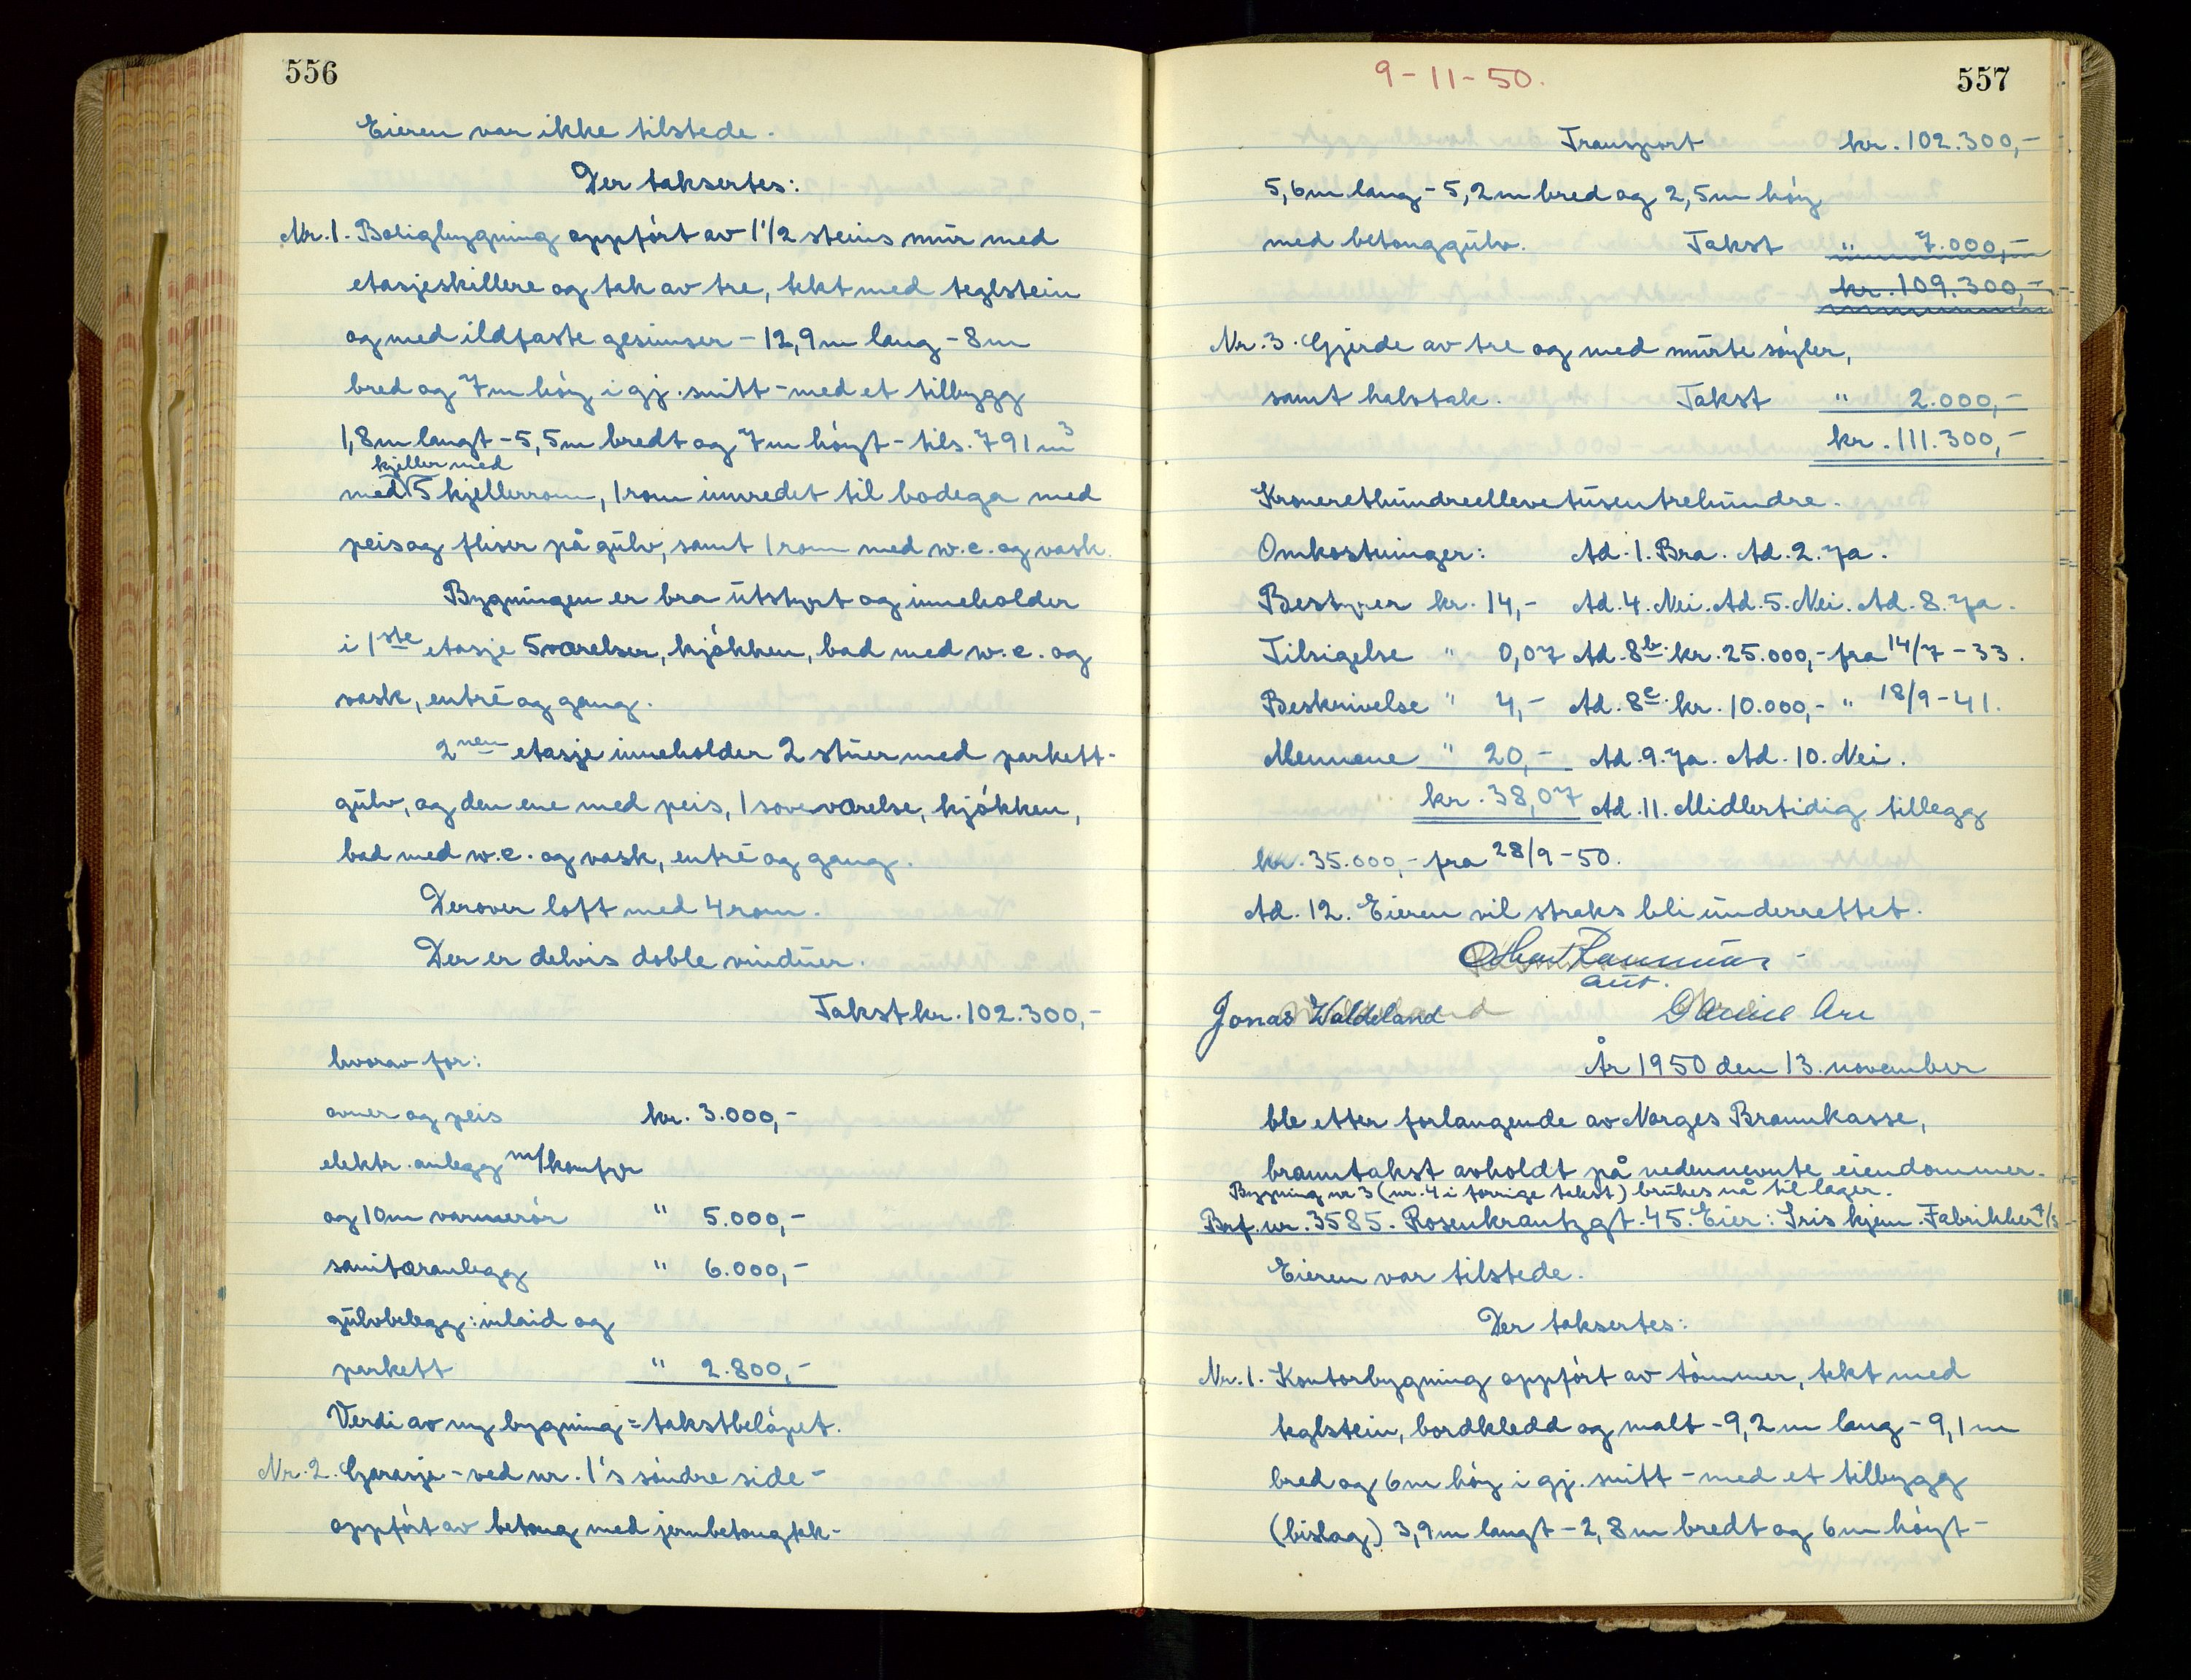 556
Eieren var ikke tilstede.
Der taksertes:
Nr. 1. Boligbygning oppført av 1 1/2 steins mur med
etasjeskillere og tak av tre, tekt med teglstein
og med ildfaste gesimser - 12,9 m lang - 8 m
bred og 7 m høy i gj. snitt - med et tilbygg
1,8 m langt - 5,5 m bredt og 7 m høyt - tils. 791 m³
kjeller med
med 5 kjellerrom, 1 rom innredet til bodega med
peis og fliser på gulv, samt 1 rom med w.c. og vask.
Bygningen er bra utstyrt og inneholder
i 1ste etasje 5 værelser, kjøkken, bad med w.c. og
vask, entré og gang.
2nen etasje inneholder 2 stuer med parkett-
gulv, og den ene med peis, 1 soveværelse, kjøkken,
bad med w.c. og vask, entré og gang.
Derover loft med 4 rom.
Der er delvis doble vinduer.
Takst kr. 102.300,-
hvorav for:
ovner og peis kr. 3.000,-
elektr. anlegg m/komfyr
og 10 m varmerør " 5.000,-
sanitæranlegg " 6.000,-
gulvbelegg: inlaid og
parkett " 2.800,-
Verdi av ny bygning = takstbeløpet.
Nr. 2. Garasje - ved nr. 1's søndre side -
oppført av betong med jernbetongtak -
9-11-50.
557
Transport kr. 102.300,-
5,6 m lang - 5,2 m bred og 2,5 m høy
med betonggulv. Takst " 7.000,-
kr. 109.300,-
Nr. 3. Gjerde av tre og med murte søyler,
samt halvtak. Takst " 2.000,-
kr. 111.300,-
Kroneretthundreellevetusentrehundre.
Omkostninger: Ad. 1. Bra. Ad. 2. Ja.
Bestyrer kr. 14,- Ad. 4. Nei. Ad. 5. Nei. Ad. 8. Ja.
Tilsigelse " 0,07 Ad. 8b. kr. 25.000,- fra 14/7-33.
Beskrivelse " 4,- Ad. 8c. kr. 10.000,- " 18/9-41.
Mennene " 20,- Ad. 9. Ja. Ad. 10. Nei.
kr. 38,07 Ad. 11. Midlertidig tillegg
kr. 35.000,- fra 28/9-50.
Ad. 12. Eieren vil straks bli underrettet.
aut.
Jonas Waldeland
År 1950 den 13. november
ble etter forlangende av Norges Brannkasse,
branntakst avholdt på nedennevnte eiendommer.
Bygning nr 3 (nr. 4 i forrige takst) brukes nå til lager.
Brf. nr. 3585. Rosenkrantzgt. 45. Eier: Iris kjem. Fabrikker A/S
Eieren var tilstede.
Der taksertes:
Nr. 1. Kontorbygning oppført av tømmer, tekt med
teglstein, bordkledd og malt - 9,2 m lang - 9,1 m
bred og 6 m høy i gj. snitt - med et tilbygg
(bislag) 3,9 m langt - 2,8 m bredt og 6 m høyt -